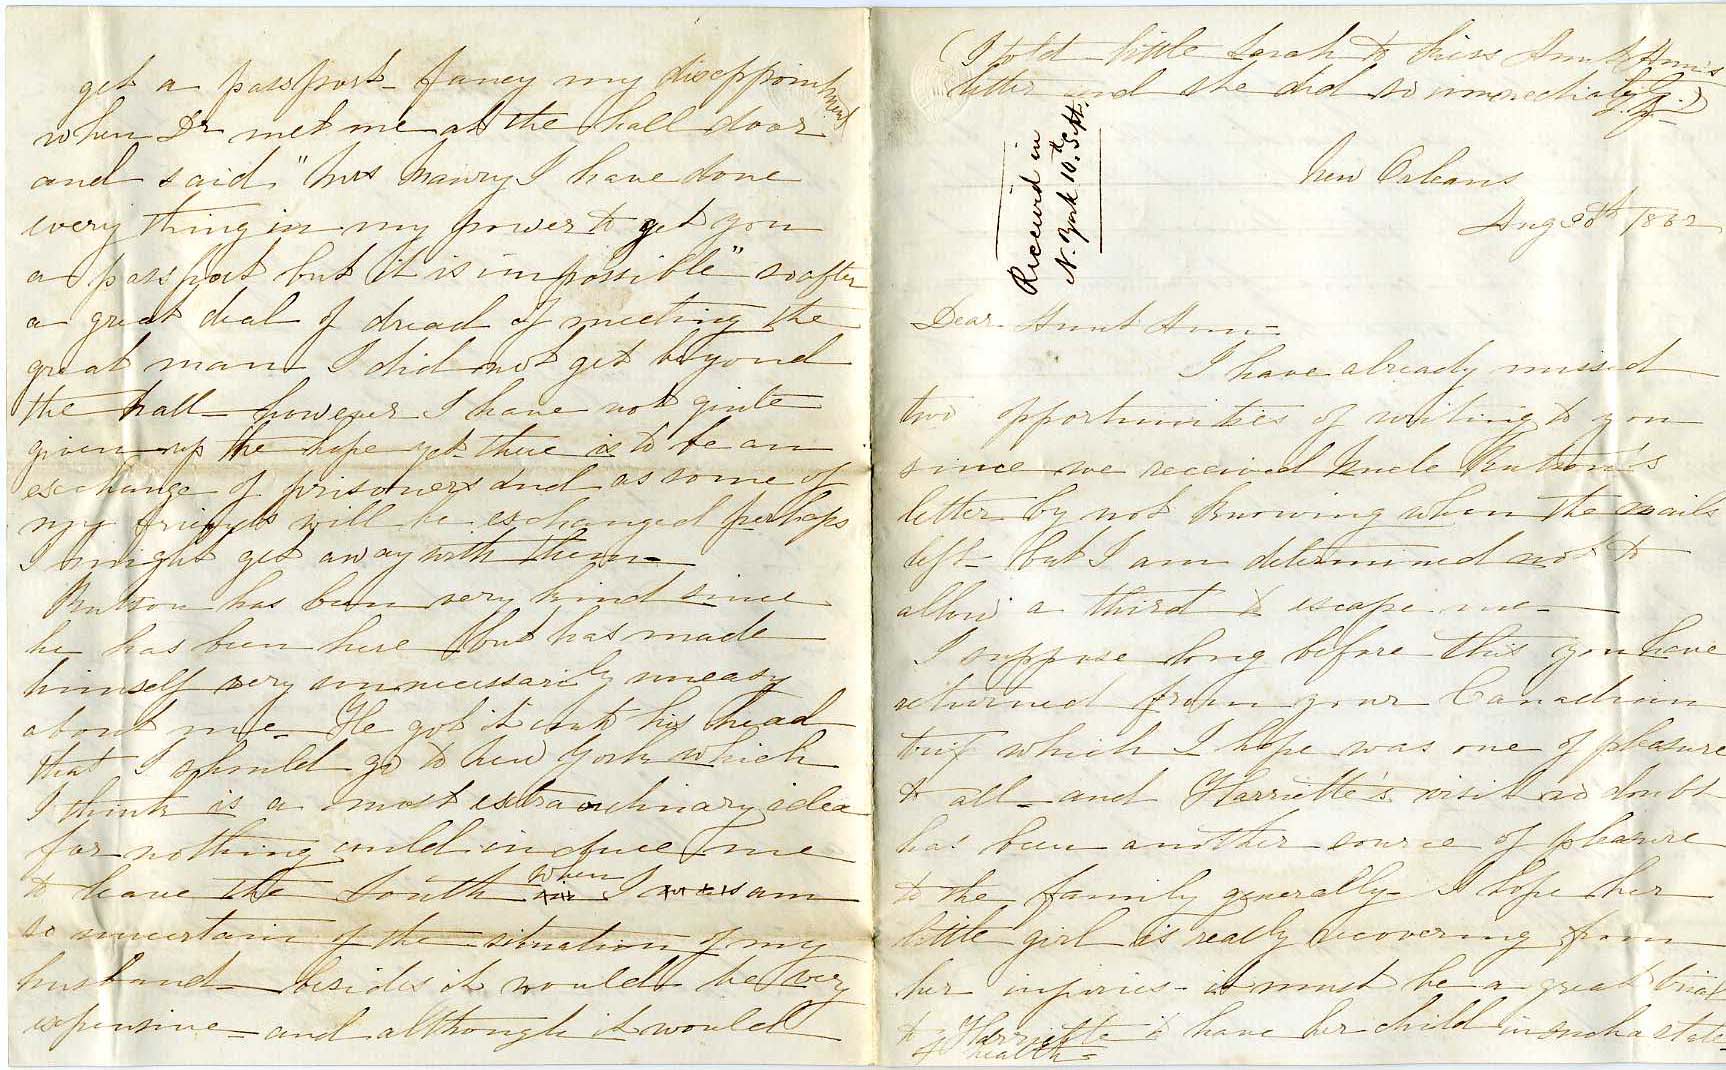 (I told little Sarah to kiss Aunt Ann's
letter and she did so immediately
New Orleans
Aug 30th 1862
Received in
N. York 10th Sept.
Dear Aunt Ann-
I have already missed
two opportunities of writing to you
since we received Uncle Rutson's
letter by not knowing when the mails
left- but I am determined not to
allow a third to escape me-
I suppose long before this you have
returned from your Canadian
trip which I hope was one of pleasure
to all- and Harriette's visit no doubt
has been another source of pleasure
to the family generally- I hope her
little girl is really recovering from
her injuries- it must be a great trial
to Harriette to have her child in such a state
of health-
get a passport- fancy my disappointment
when Dr met me at the hall door
and said "Mrs Maury I have done
every thing in my power to get you
a passport but it is impossible" so after
a great deal of dread of meeting the
great man I did not get beyond
the hall- however I have not quite
given up the hope yet there is to be an
exchange of prisoners and as some of
my friends will be exchanged perhaps
I might get away with them-
Rutson has been very kind since
he has been here but has made
himself very unnecessarily uneasy
about me- He got it into his head
that I should go to New York which
I think is a most extraordinary idea
for nothing could induce me
to leave the South when I am
so uncertain of the situation of my
husband- besides it would be very
expensive- and although it would